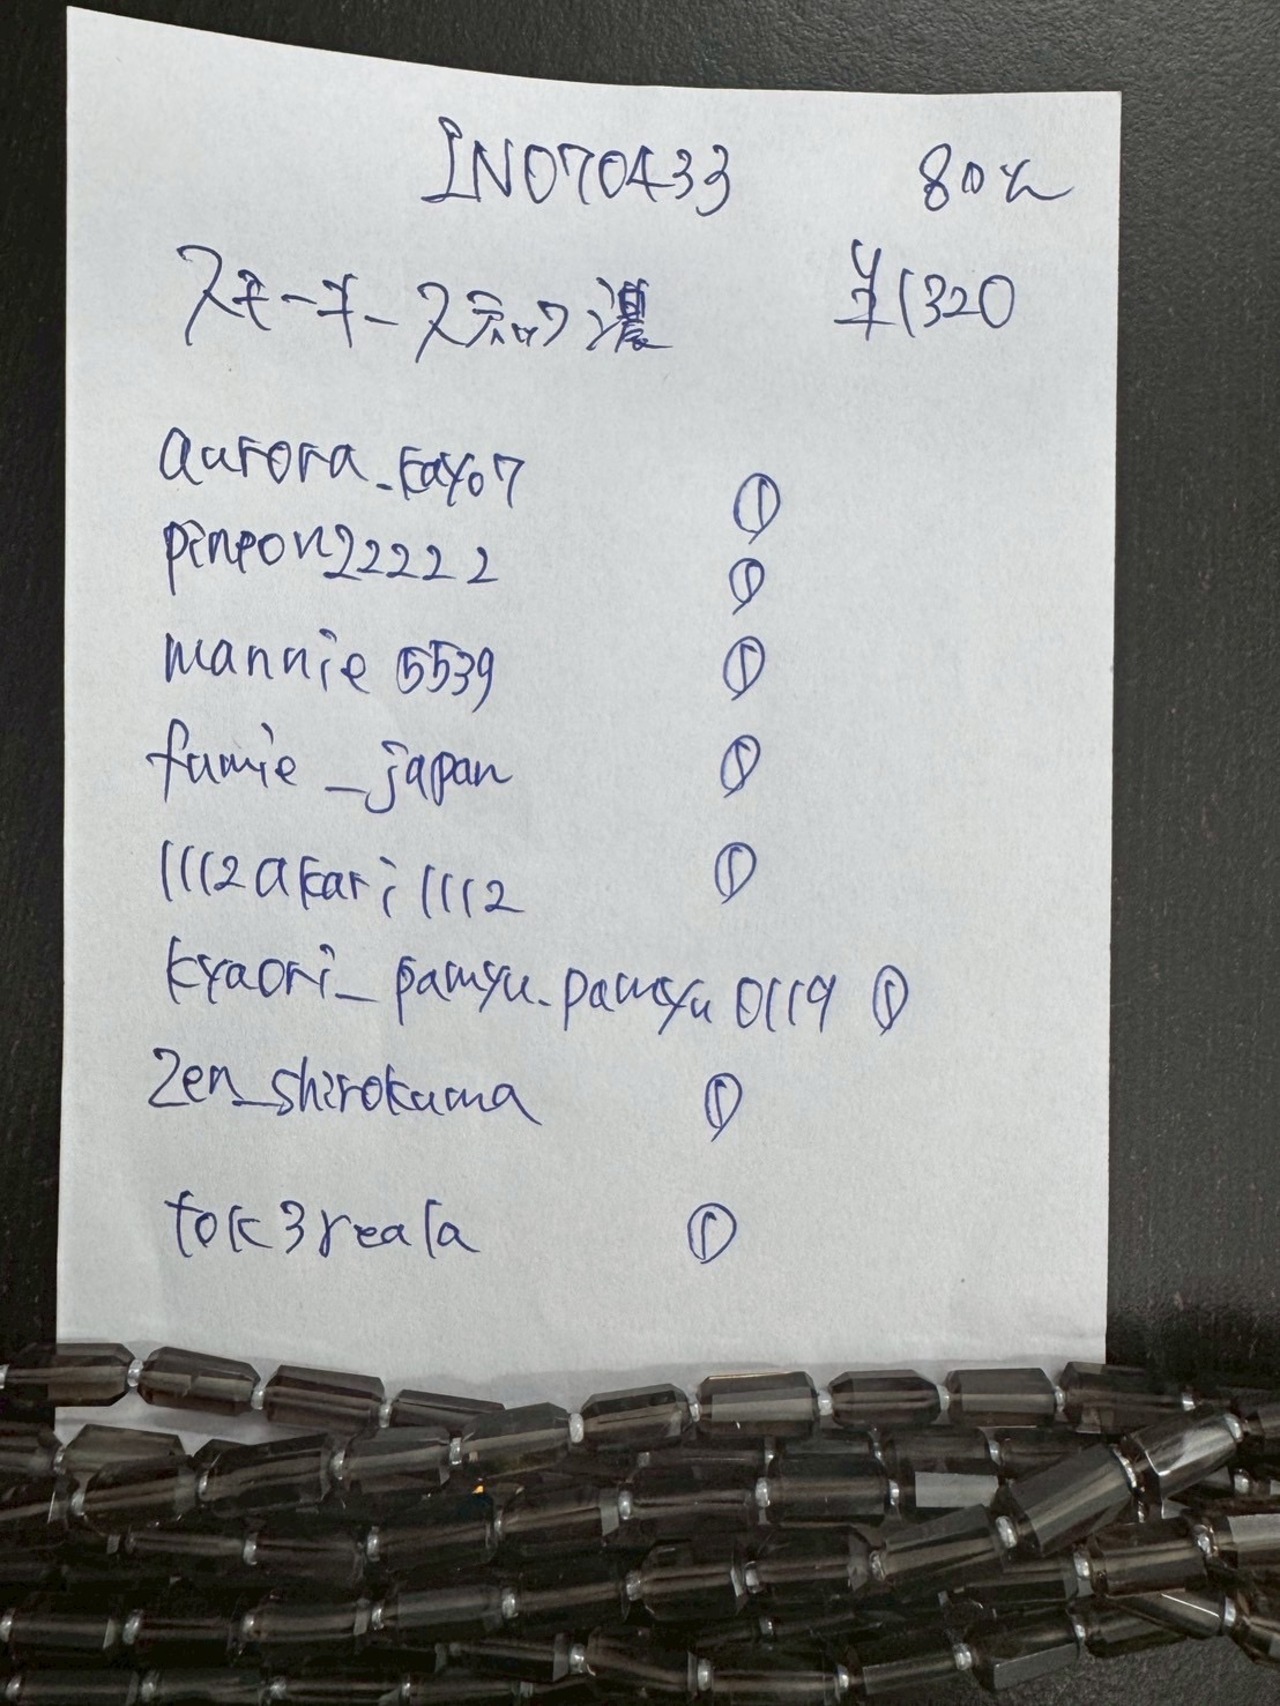 IN070433 80%
スモーキースティック濃 ¥1320
aurora_kayo7 ①
pinpon22222 ①
mannie5539 ①
fumie_japan ①
1112akari1112 ①
kyaori_pamyu.pamyu0119 ①
zen_shirokuma ①
tok3reala ①